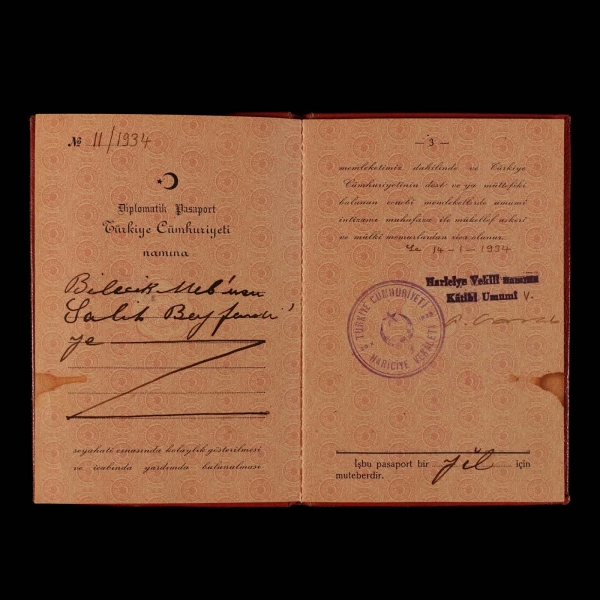 № 11/1934
Diplomatik Pasaport
Türkiye Cümhuriyeti
namına
Bilecik Meb'usu
Salih Bey
ye
seyahati esnasında kolaylık gösterilmesi
ve icabında yardımda bulunulması
— 3 —
memleketimiz dahilinde ve Türkiye
Cümhuriyetinin dost ve ya müttefiki
bulunan ecnebi memleketlerde umumî
intizamı muhafaza ile mükellef askerî
ve mülkî memurlardan rica olunur.
14-1-1934
Hariciye Vekili namına
Kâtibi Umumî V.
TÜRKİYE CUMHURİYETİ
HARİCİYE VEKÂLETİ
İşbu pasaport bir yıl için
muteberdir.